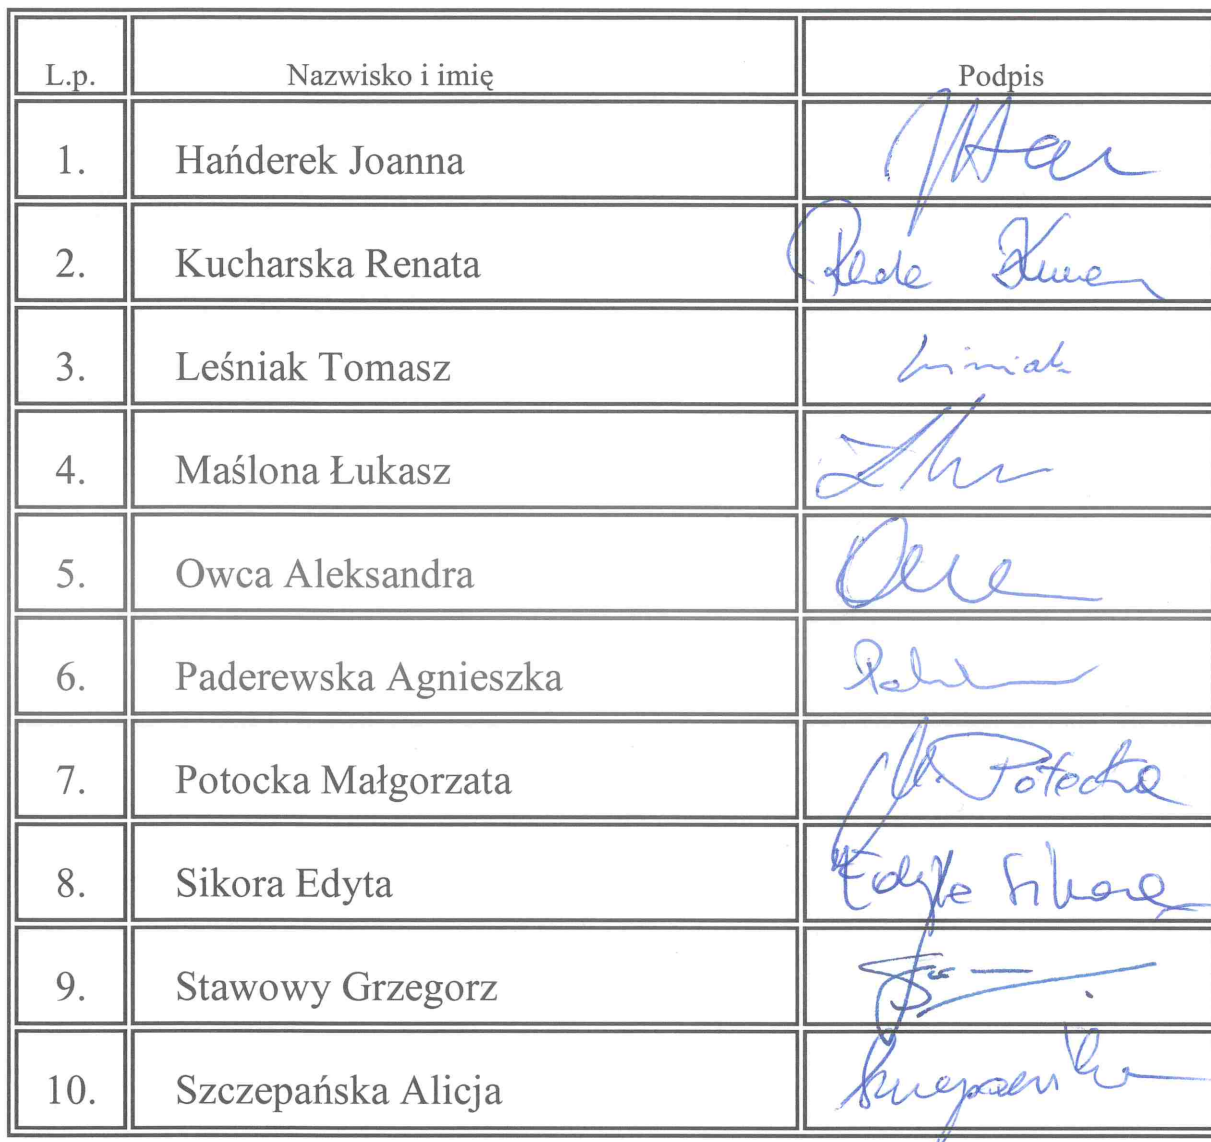 L.p. Nazwisko i imię Podpis
1. Hańderek Joanna
2. Kucharska Renata
3. Leśniak Tomasz
4. Maślona Łukasz
5. Owca Aleksandra
6. Paderewska Agnieszka
7. Potocka Małgorzata M. Potocka
8. Sikora Edyta Edyta Sikora
9. Stawowy Grzegorz
10. Szczepańska Alicja